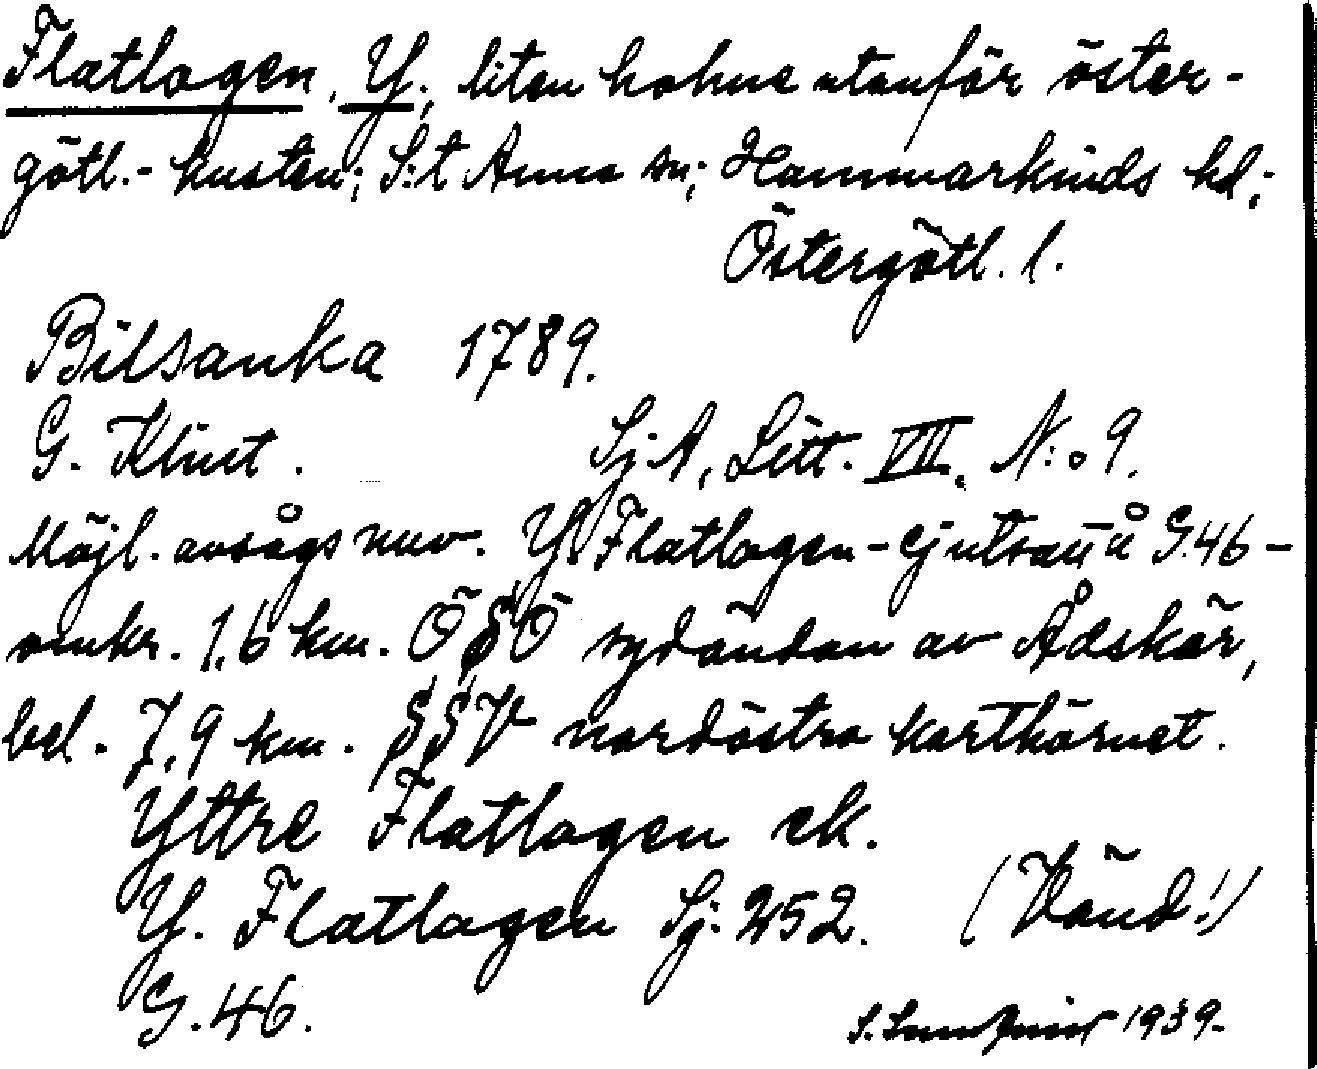 Flatlagen, Y., liten holme utanför öster-
götl.-kusten; S:t Anna sn; Hammarkinds hd;
Östergötl. l.
Bilsanka 1789.
G. Klint. SjA, Litt. VII. N:o 9.
Möjl. avsågs nuv. Y. Flatlagen - ej utsatt å G.46 -
omkr. 1,6 km. ÖSÖ sydändan av Ådskär,
bel. 7,9 km. SSV nordöstra karthörnet.
Yttre Flatlagen ek.
Y. Flatlagen Sj. 252. (Vänd!)
G.46.
S. 1939.